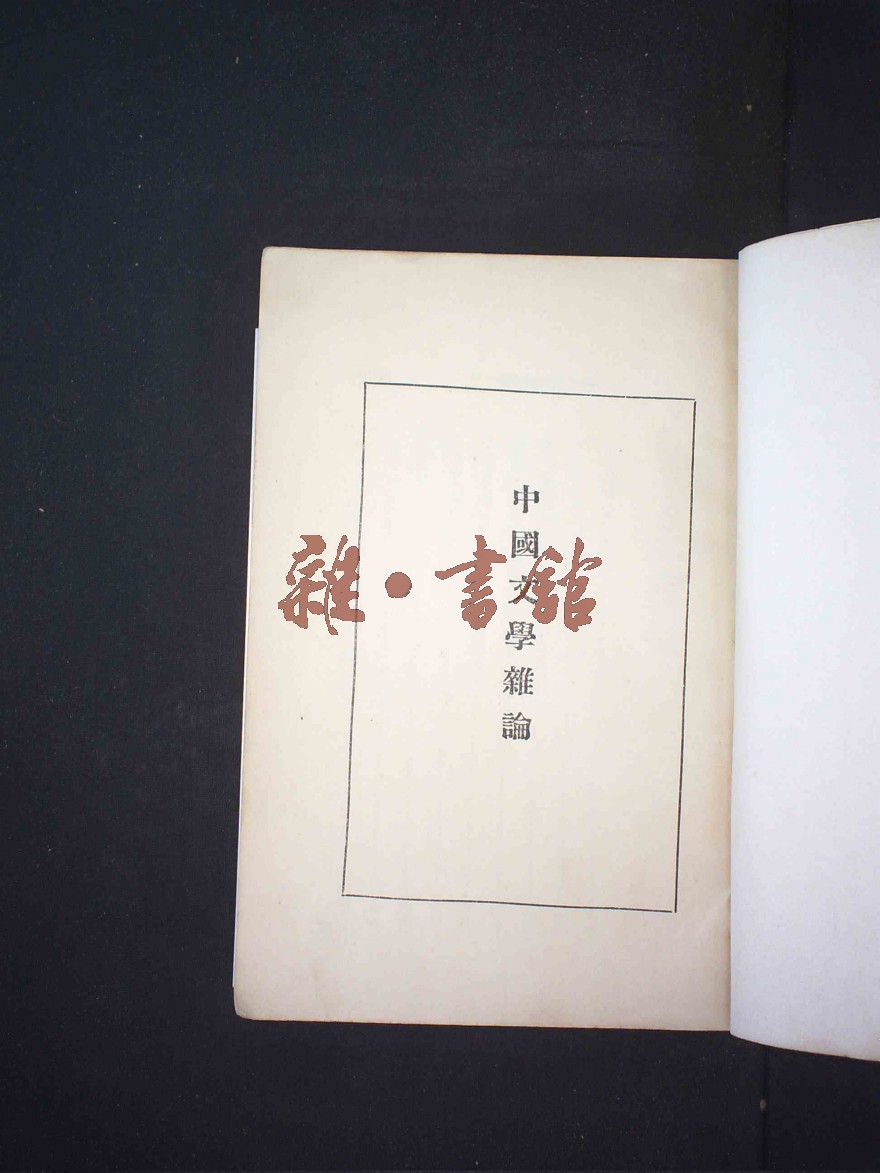 中國文學雜論
雜·書館